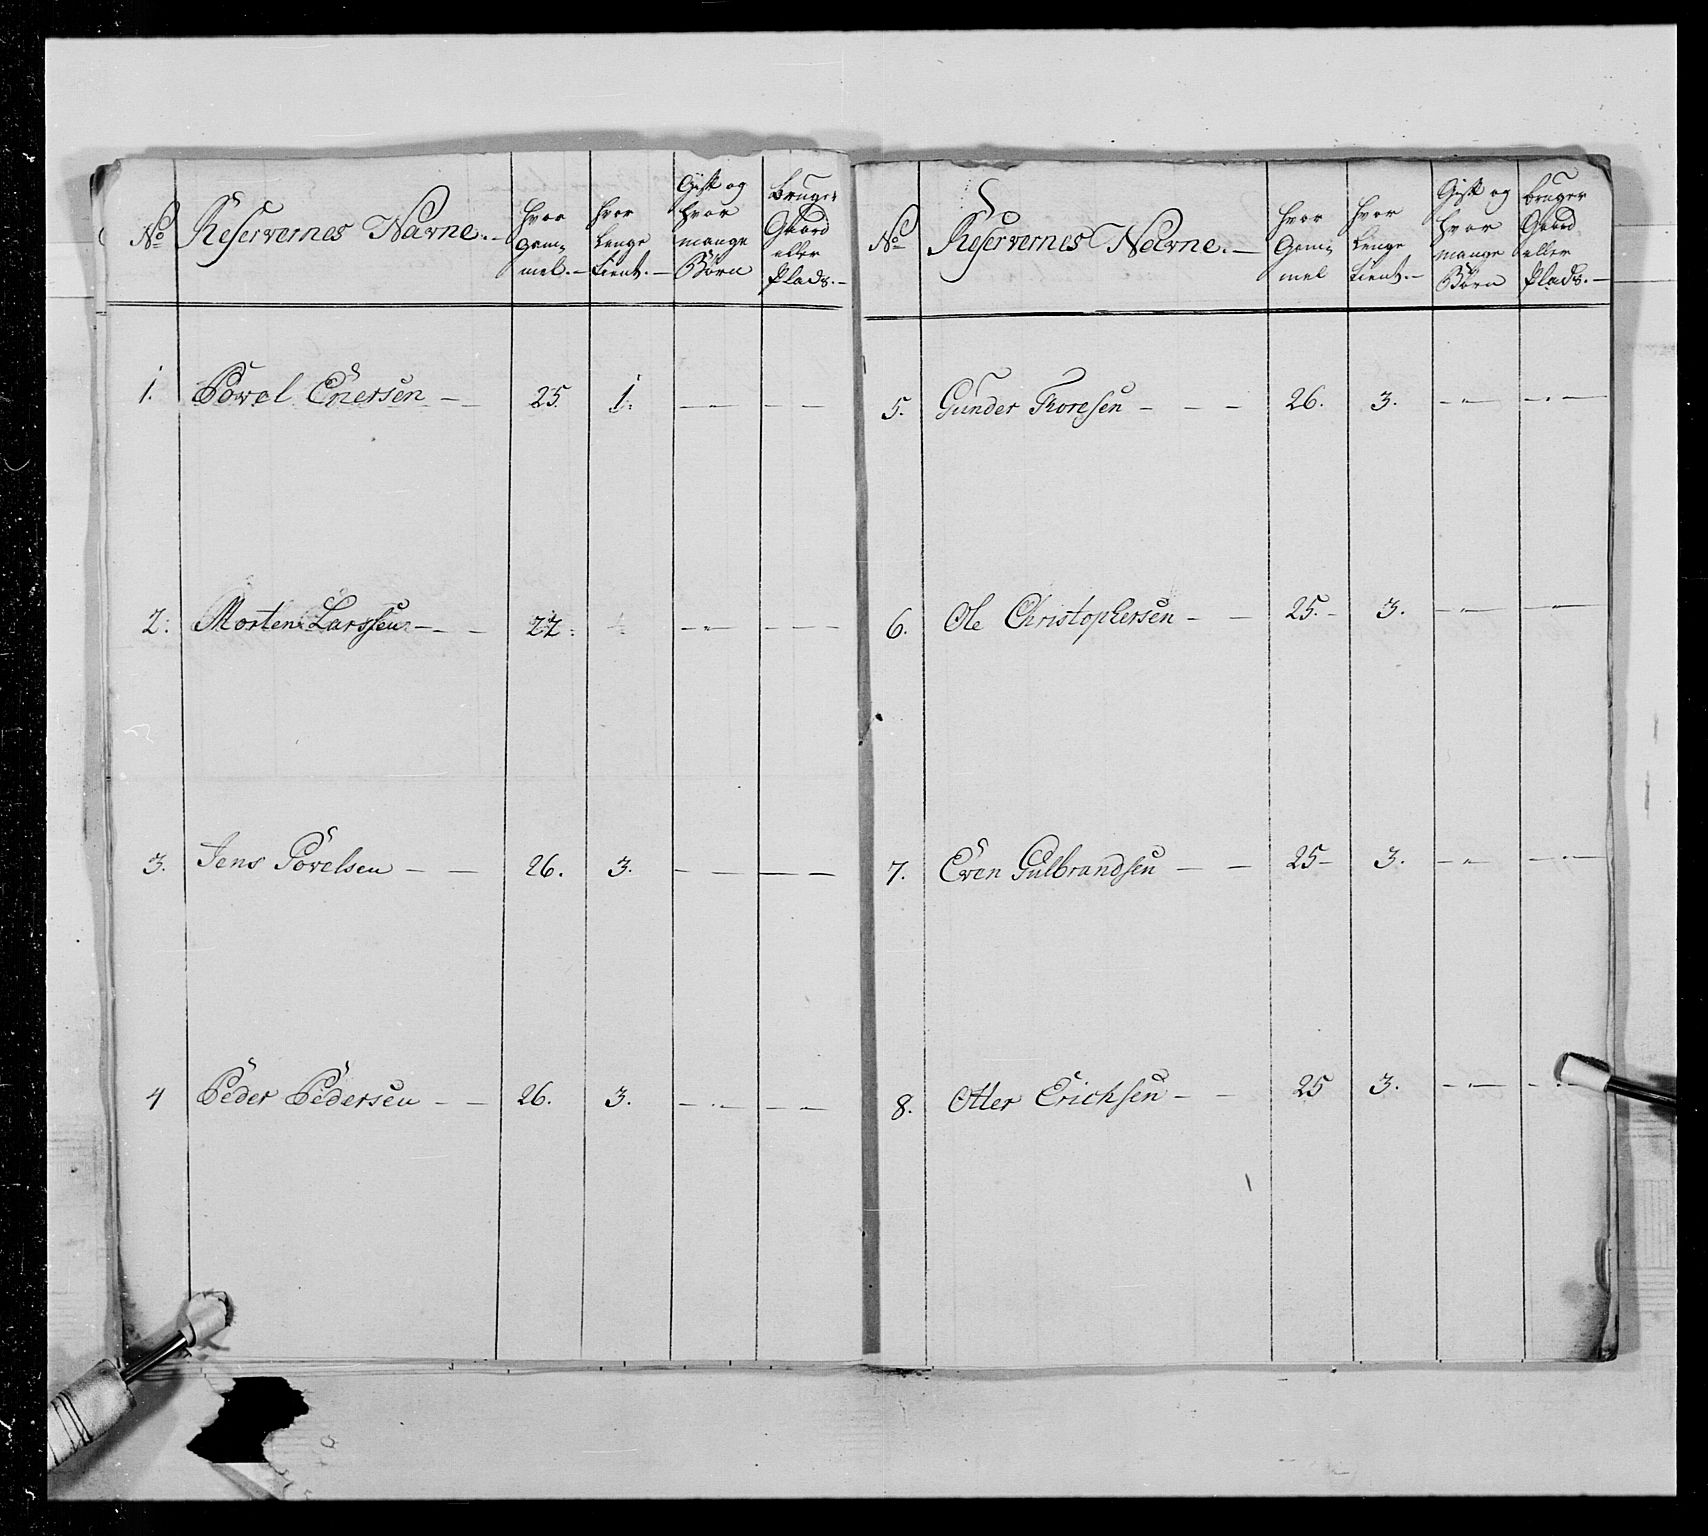 No Reservernes Navne. hvor Gammel. hvor Lenge tient. Gift og hvor mange Børn Bruger Gaard eller Plads.
1. Povel Enersen 25. 1.
2. Morten Larssen 22.
3. Jens Povelsen 26. 3.
4 Peder Pedersen 26. 3.
No Reservernes Navne. hvor Gammel hvor Lenge tient. Gift og hvor mange Børn bruger Gaard eller Plads.
5. Gunder Thoresen 26. 3.
6. Ole Christophersen 25. 3.
7. Even Gulbrandsen 25 3.
8. Otter Erichsen 25 3.